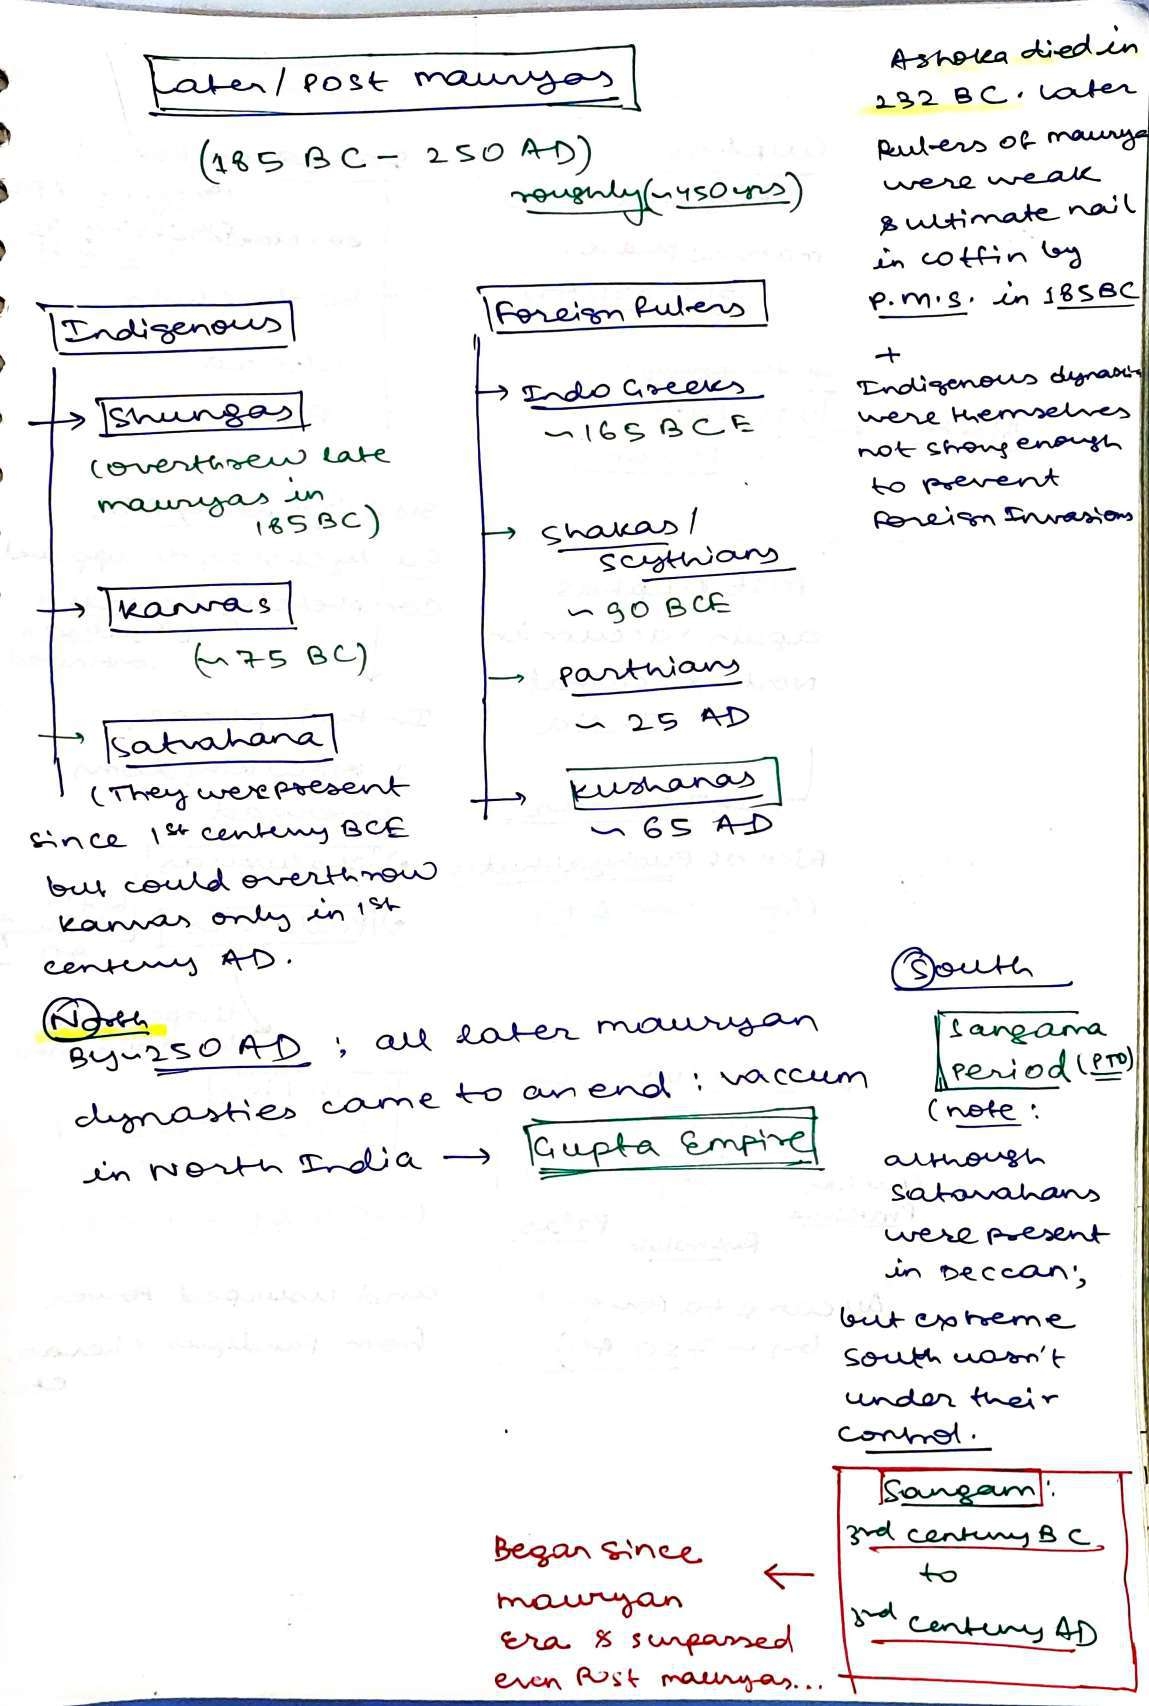 Later / Post mauryas
(185 BC - 250 AD)
roughly (~450 yrs)
Ashoka died in
232 BC. Later
Rulers of maurya
were weak
& ultimate nail
in coffin by
P.M.S. in 185BC
+
Indigenous
were themselves
not strong enough
to prevent
Foreign Invasions
Indigenous
→ Shungas
(overthrew late
mauryas in
185 BC)
→ Kanvas
(~75 BC)
→ Satvahana
(They were present
since 1st century BCE
but could overthrow
Kanvas only in 1st
century AD.
Foreign Rulers
→ Indo Greeks
~165 BCE
→ Shakas /
Scythians
~ 90 BCE
→ Parthians
~ 25 AD
→ Kushanas
~ 65 AD
North
By ~250 AD ; all later mauryan
dynasties came to an end : vaccum
in North India → Gupta Empire
South
Sangama
Period (PTO)
(note :
although
Satavahans
were present
in Deccan;
but extreme
South wasn't
under their
control.
Sangam :
3rd century BC
to
3rd century AD
← Began since
mauryan
Era & surpassed
even Post mauryas...